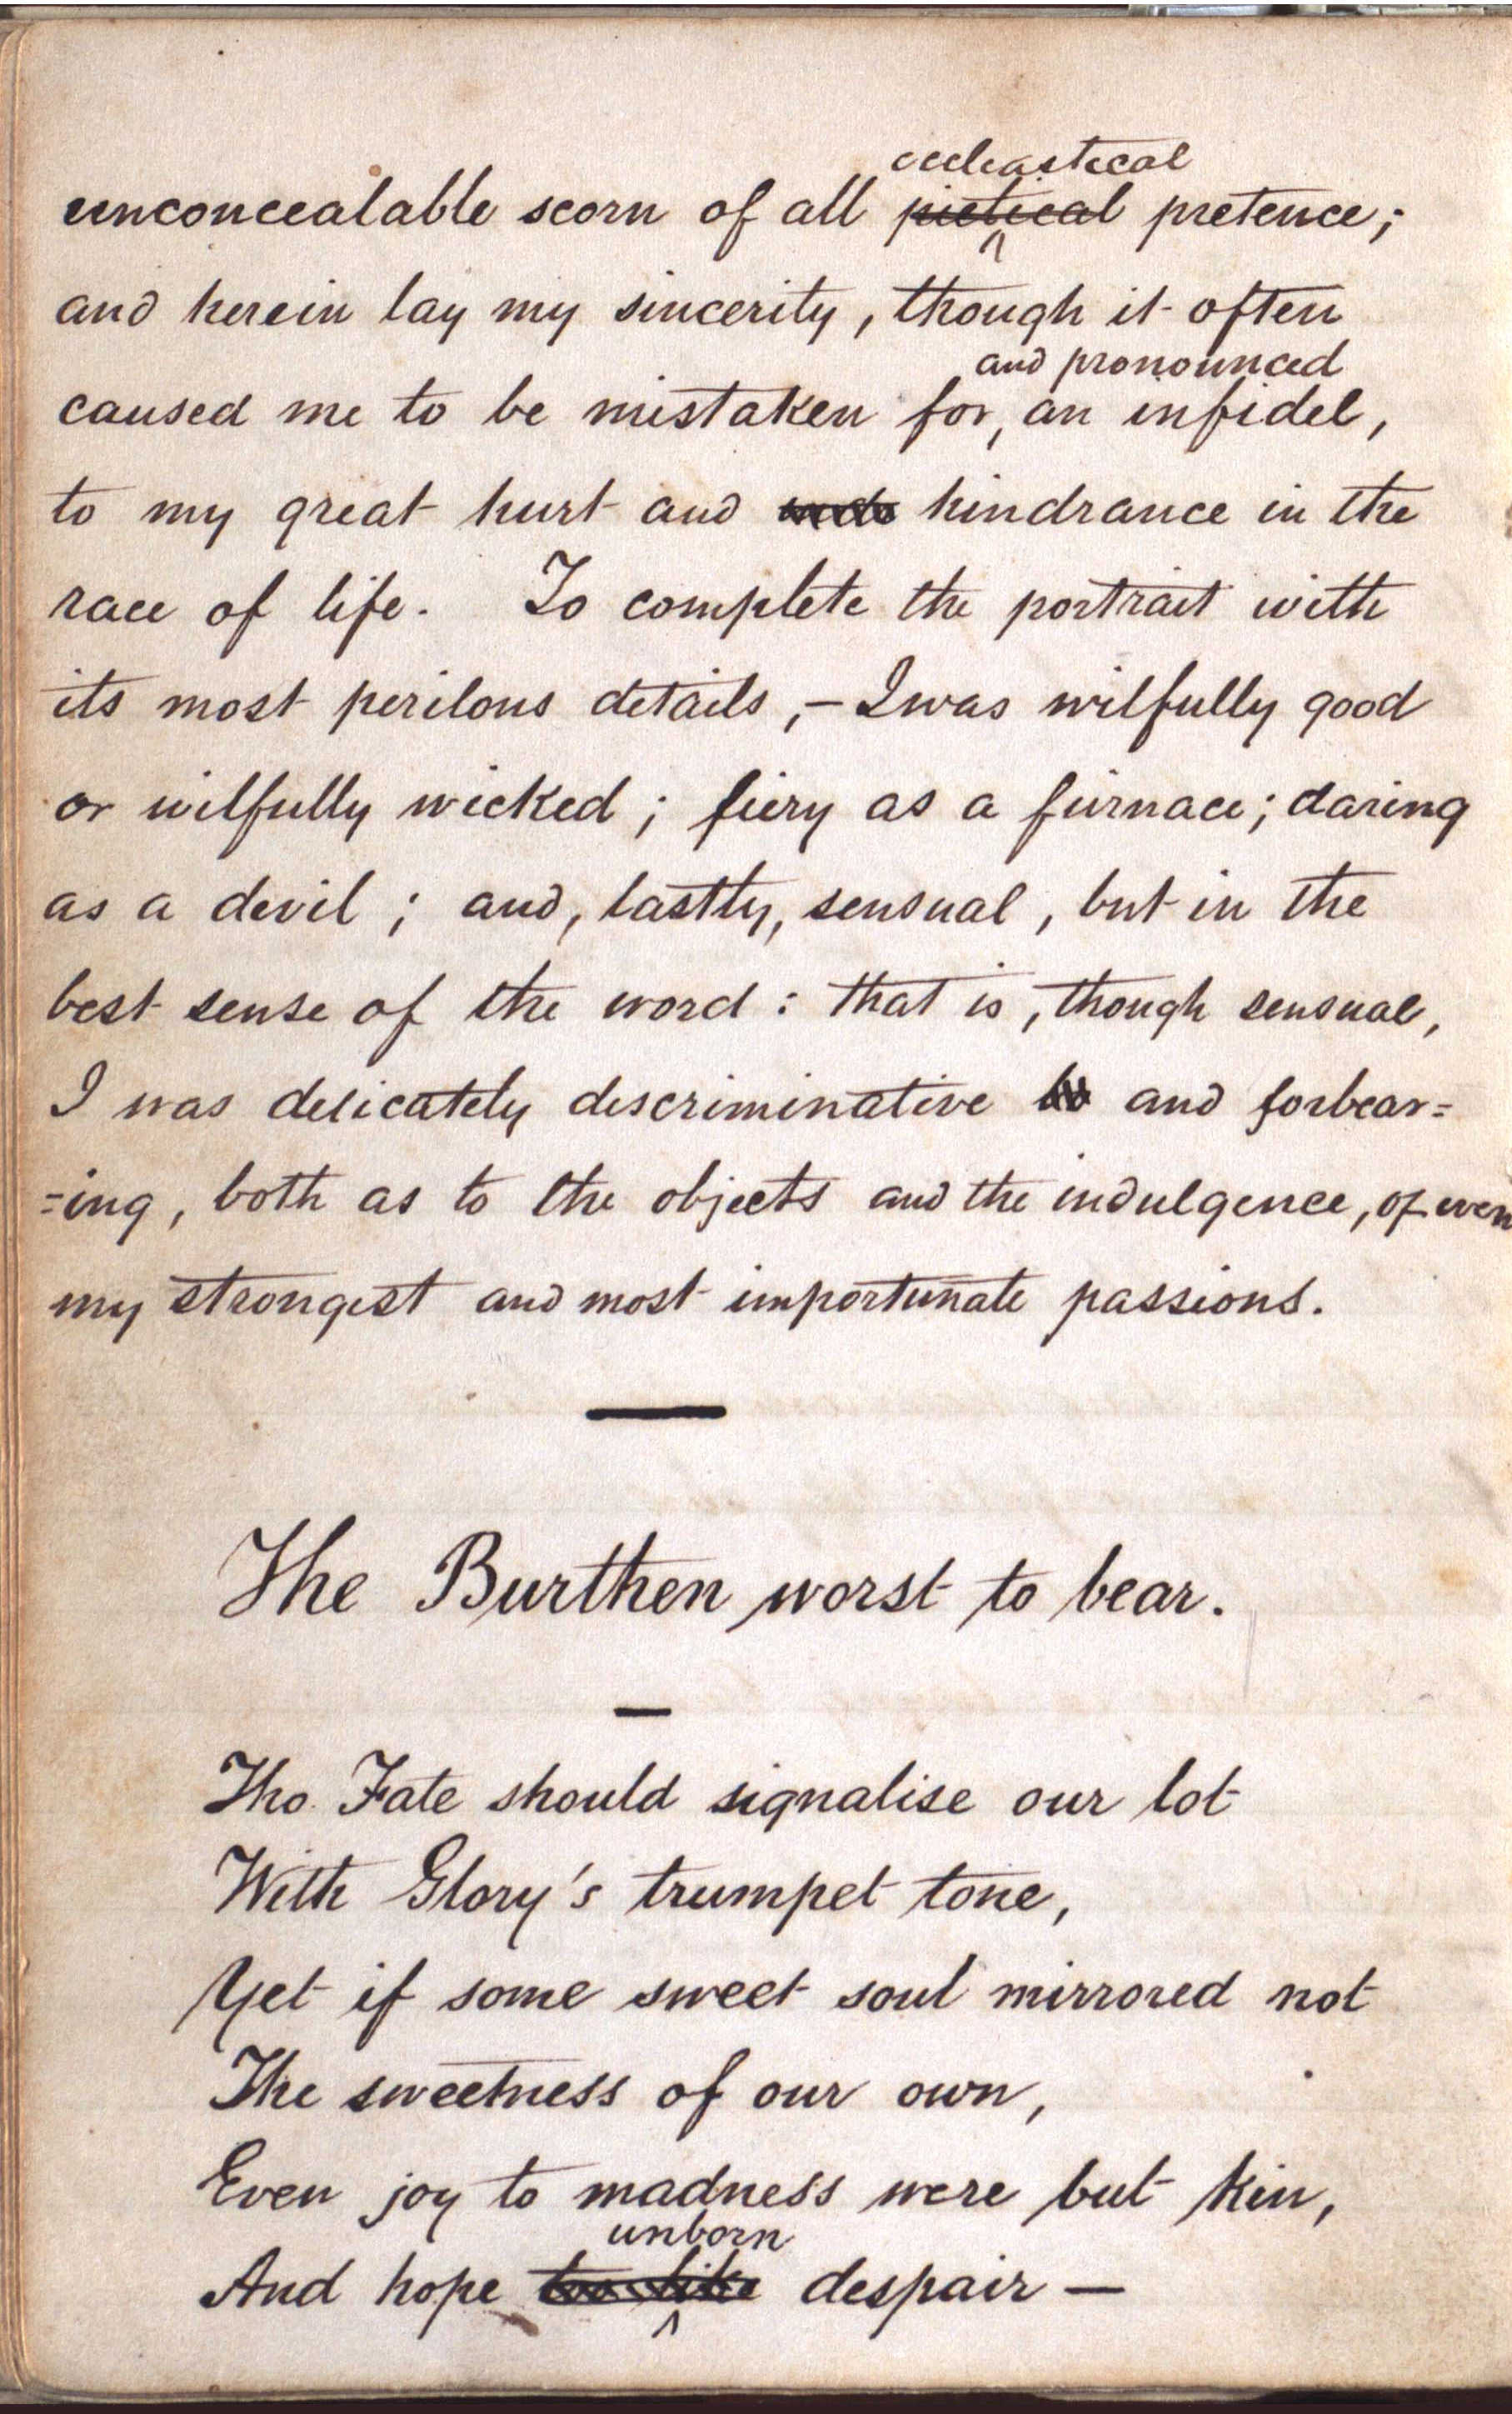 eccleastical
unconcealable scorn of all pietical pretence;
and herein lay my sincerity, though it often
and pronounced
caused me to be mistaken for, an infidel,
to my great hurt and hindrance in the
race of life. To complete the portrait with
its most perilous details, — I was wilfully good
or wilfully wicked; fiery as a furnace; daring
as a devil; and, lastly, sensual, but in the
best sense of the word: that is, though sensual,
I was delicately discriminative and forbear=
=ing, both as to the objects and the indulgence, of even
my strongest and most importunate passions.
The Burthen worst to bear.
Tho. Fate should signalise our lot
With Glory's trumpet tone,
Yet if some sweet soul mirrored not
The sweetness of our own,
Even joy to madness were but kin,
unborn
And hope too like despair —